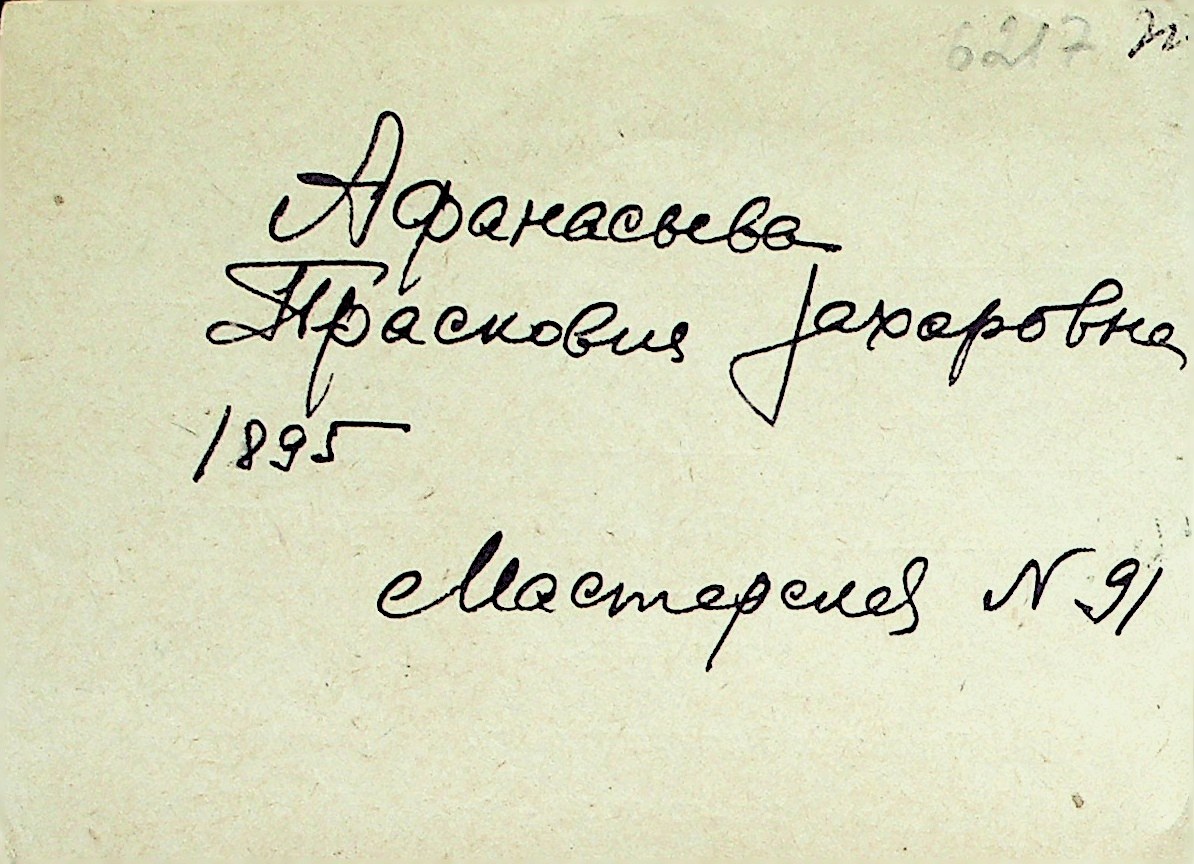 6217
Афанасьева
Прасковия Захаровна
1895
Мастерская N 91